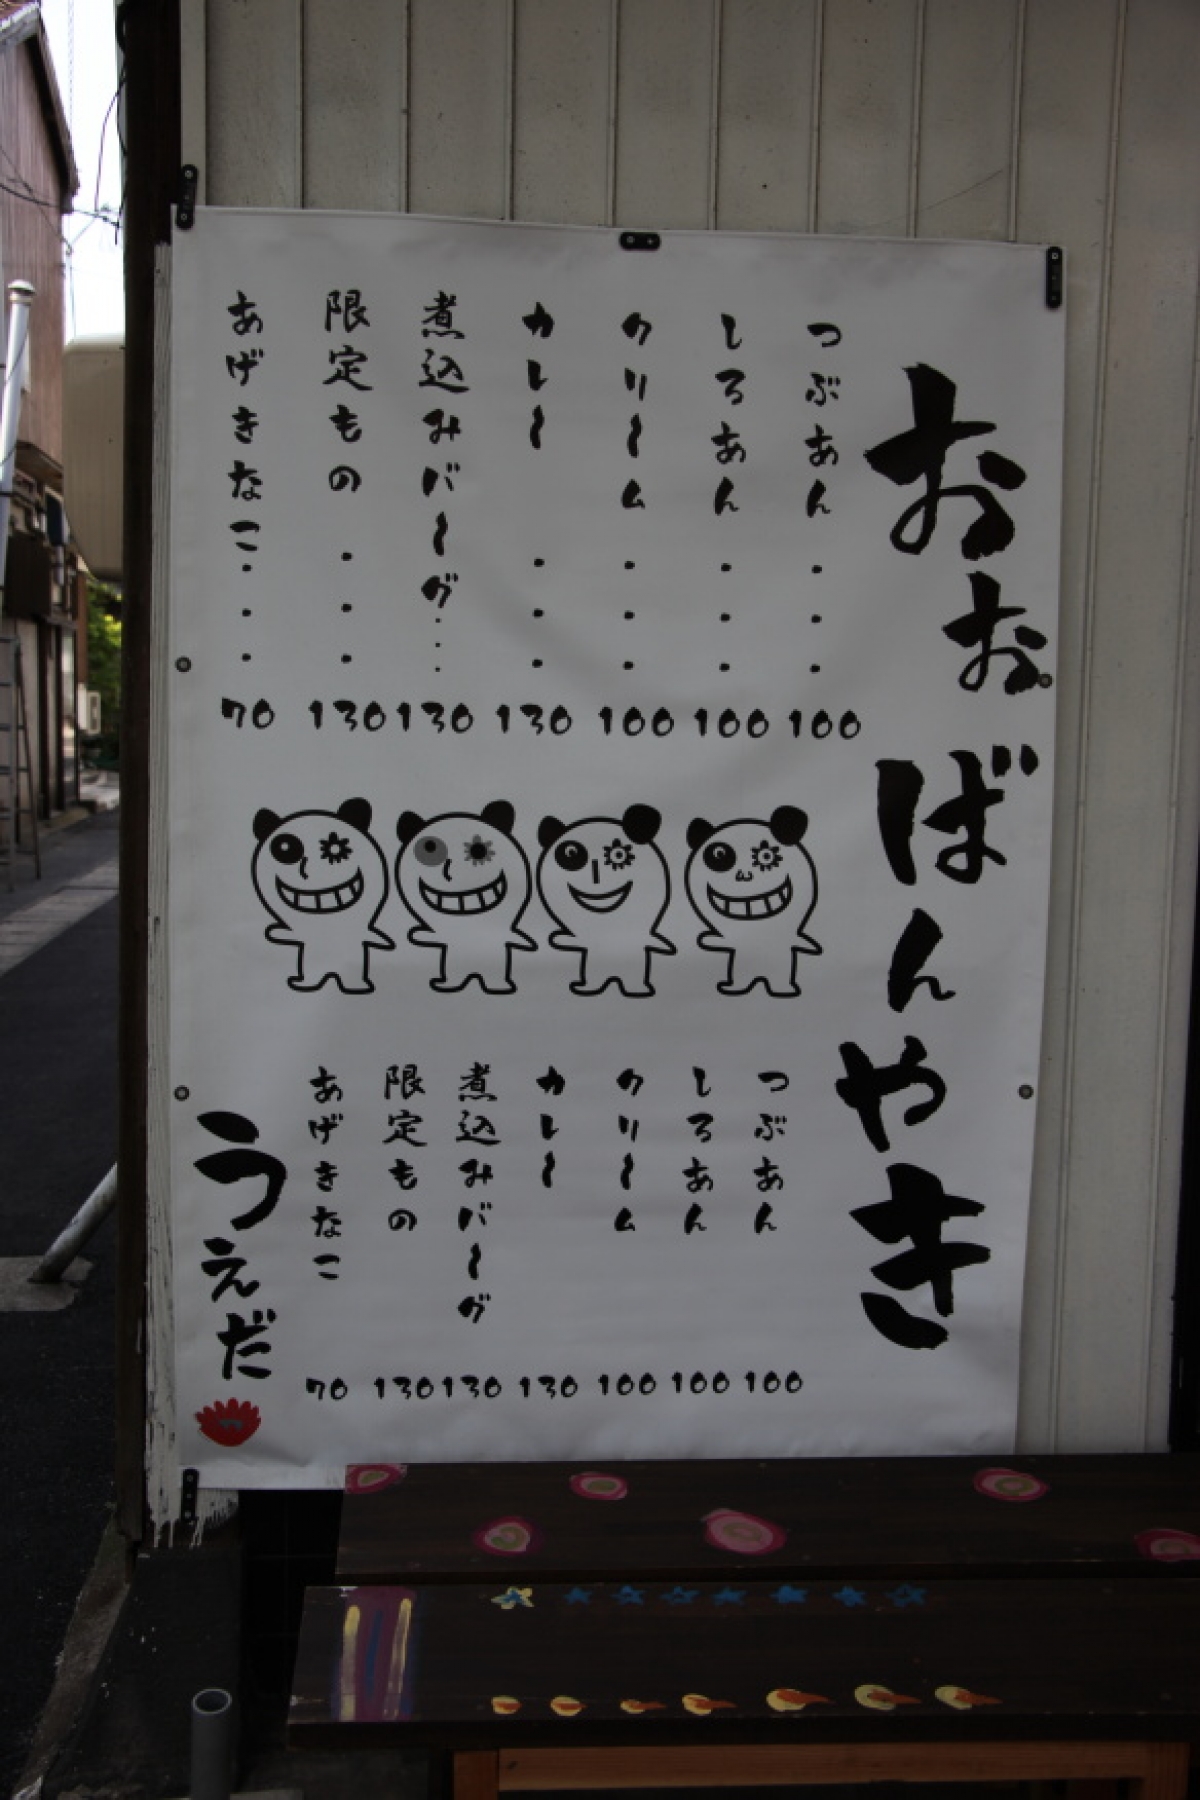 おおばんやき
つぶあん・・・100
しろあん・・・100
クリーム・・・100
カレー・・・130
煮込みバーグ・・・130
限定もの・・・130
あげきなこ・・・70
つぶあん 100
しろあん 100
クリーム 100
カレー 130
煮込みバーグ 130
限定もの 130
あげきなこ 70
うえだ